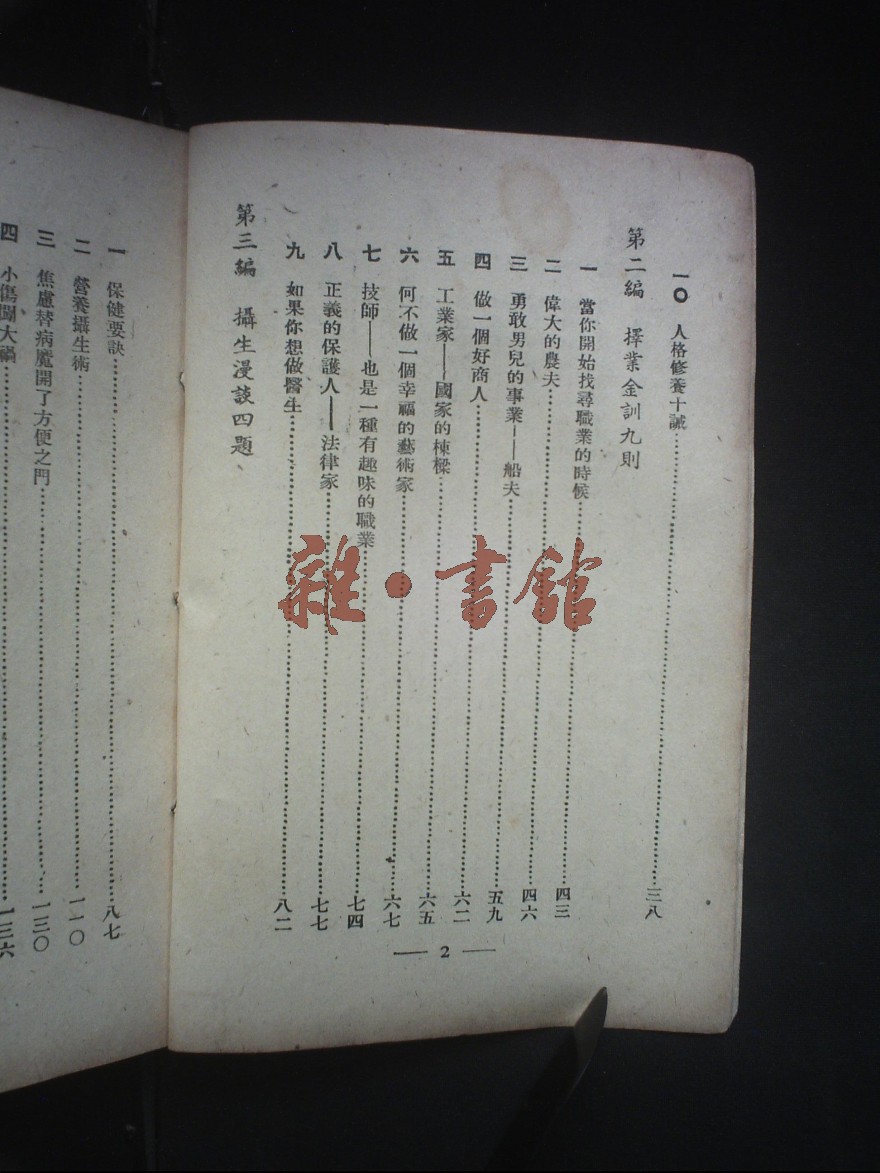 一〇 人格修養十誡……三八
第二編 擇業金訓九則
一 當你開始找尋職業的時候……四三
二 偉大的農夫……四六
三 勇敢男兒的事業——船夫……五九
四 做一個好商人……六二
五 工業家——國家的棟樑……六五
六 何不做一個幸福的藝術家……六七
七 技師——也是一種有趣味的職業……七四
八 正義的保護人——法律家……七七
九 如果你想做醫生……八二
第三編 攝生漫談四題
— 2 —
一 保健要訣……八七
二 營養攝生術……一一〇
三 焦慮替病魔開了方便之門……一三〇
四 小傷闖大禍……一三六
雜·書館